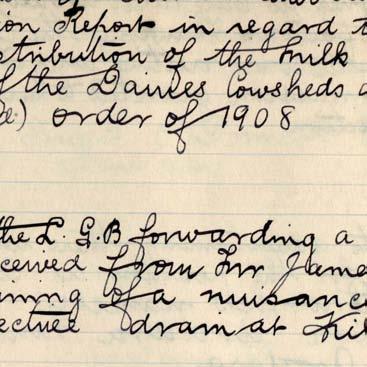 ion Report in regard t
stribution of the milk
f the Dairies Cowsheds a
&c.) order of 1908
the L. G. B forwarding a
ceived from Mr Jame
ining of a nuisance
ective drain at Kil